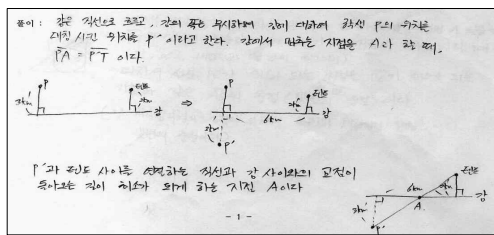 풀이 : 강은 직선으로 흐르고, 강의 폭은 무시하며 강에 대하여 학생 P의 위치를
대칭 시킨 위치를 P'이라고 한다. 강에서 멈추는 지점을 A라 할 때,
P̅A̅ = P̅'T̅ 이다.
P 텐트 P 텐트
3km 2km ⇒ 3km 2km
강 6km 강
3km
P'
P'과 텐트 사이를 연결하는 직선과 강 사이와의 교점이
돌아오는 길이 최소가 되게 하는 지점 A이다
텐트
6km 강
3km A
P'
- 1 -